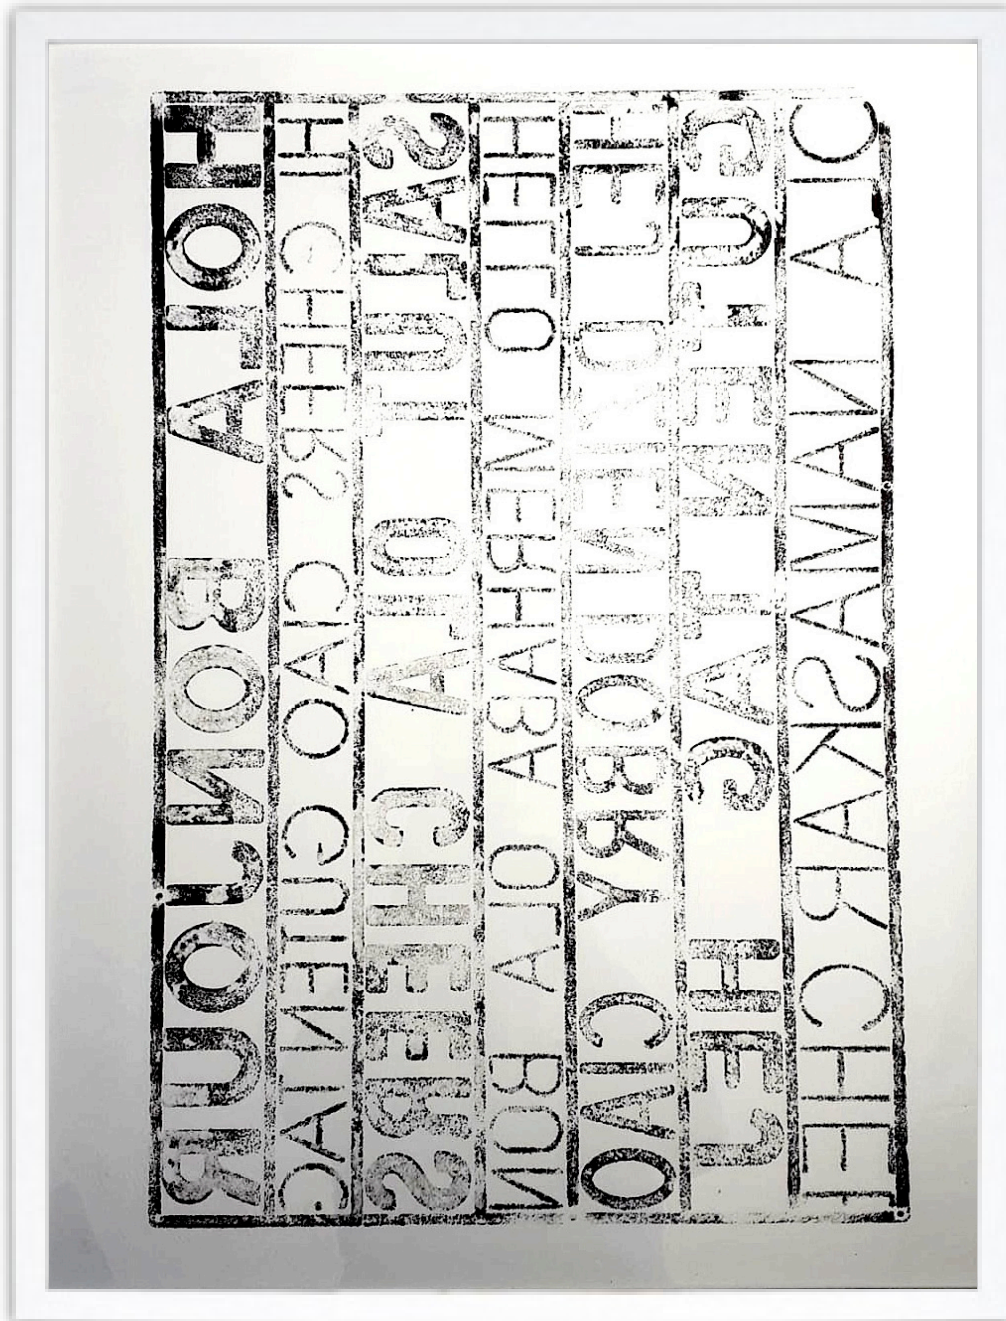 HOLA BONJOUR
HI CHEERS CIAO GUTENTAG
SALUT OLA CHEERS
HELLO MERHABA OLA BON
HEJ DZIENDOBRY CIAO
GUTEN TAG HEJ
CIA NAMASKAR